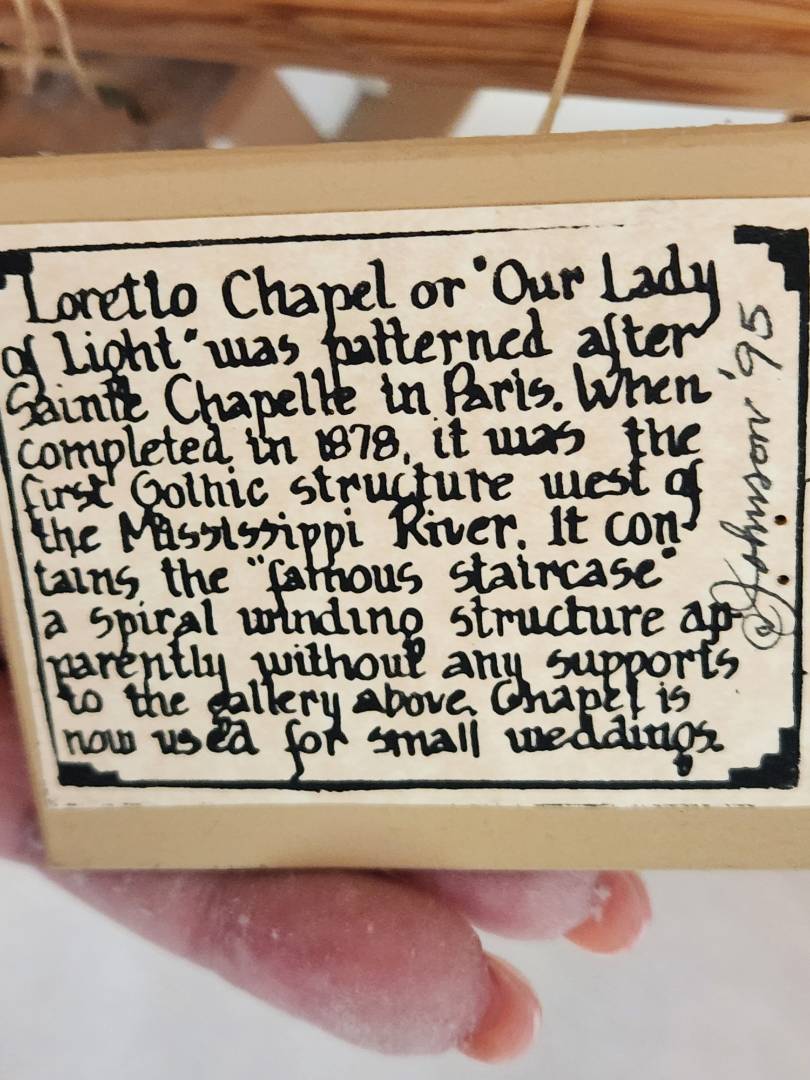 Loretto Chapel or "Our Lady
of Light" was patterned after
Sainte Chapelle in Paris. When
completed in 1878, it was the
first Gothic structure west of
the Mississippi River. It con-
tains the "famous staircase"
a spiral winding structure ap-
parently without any supports
to the gallery above. Chapel is
now used for small weddings.
@Johnson '95